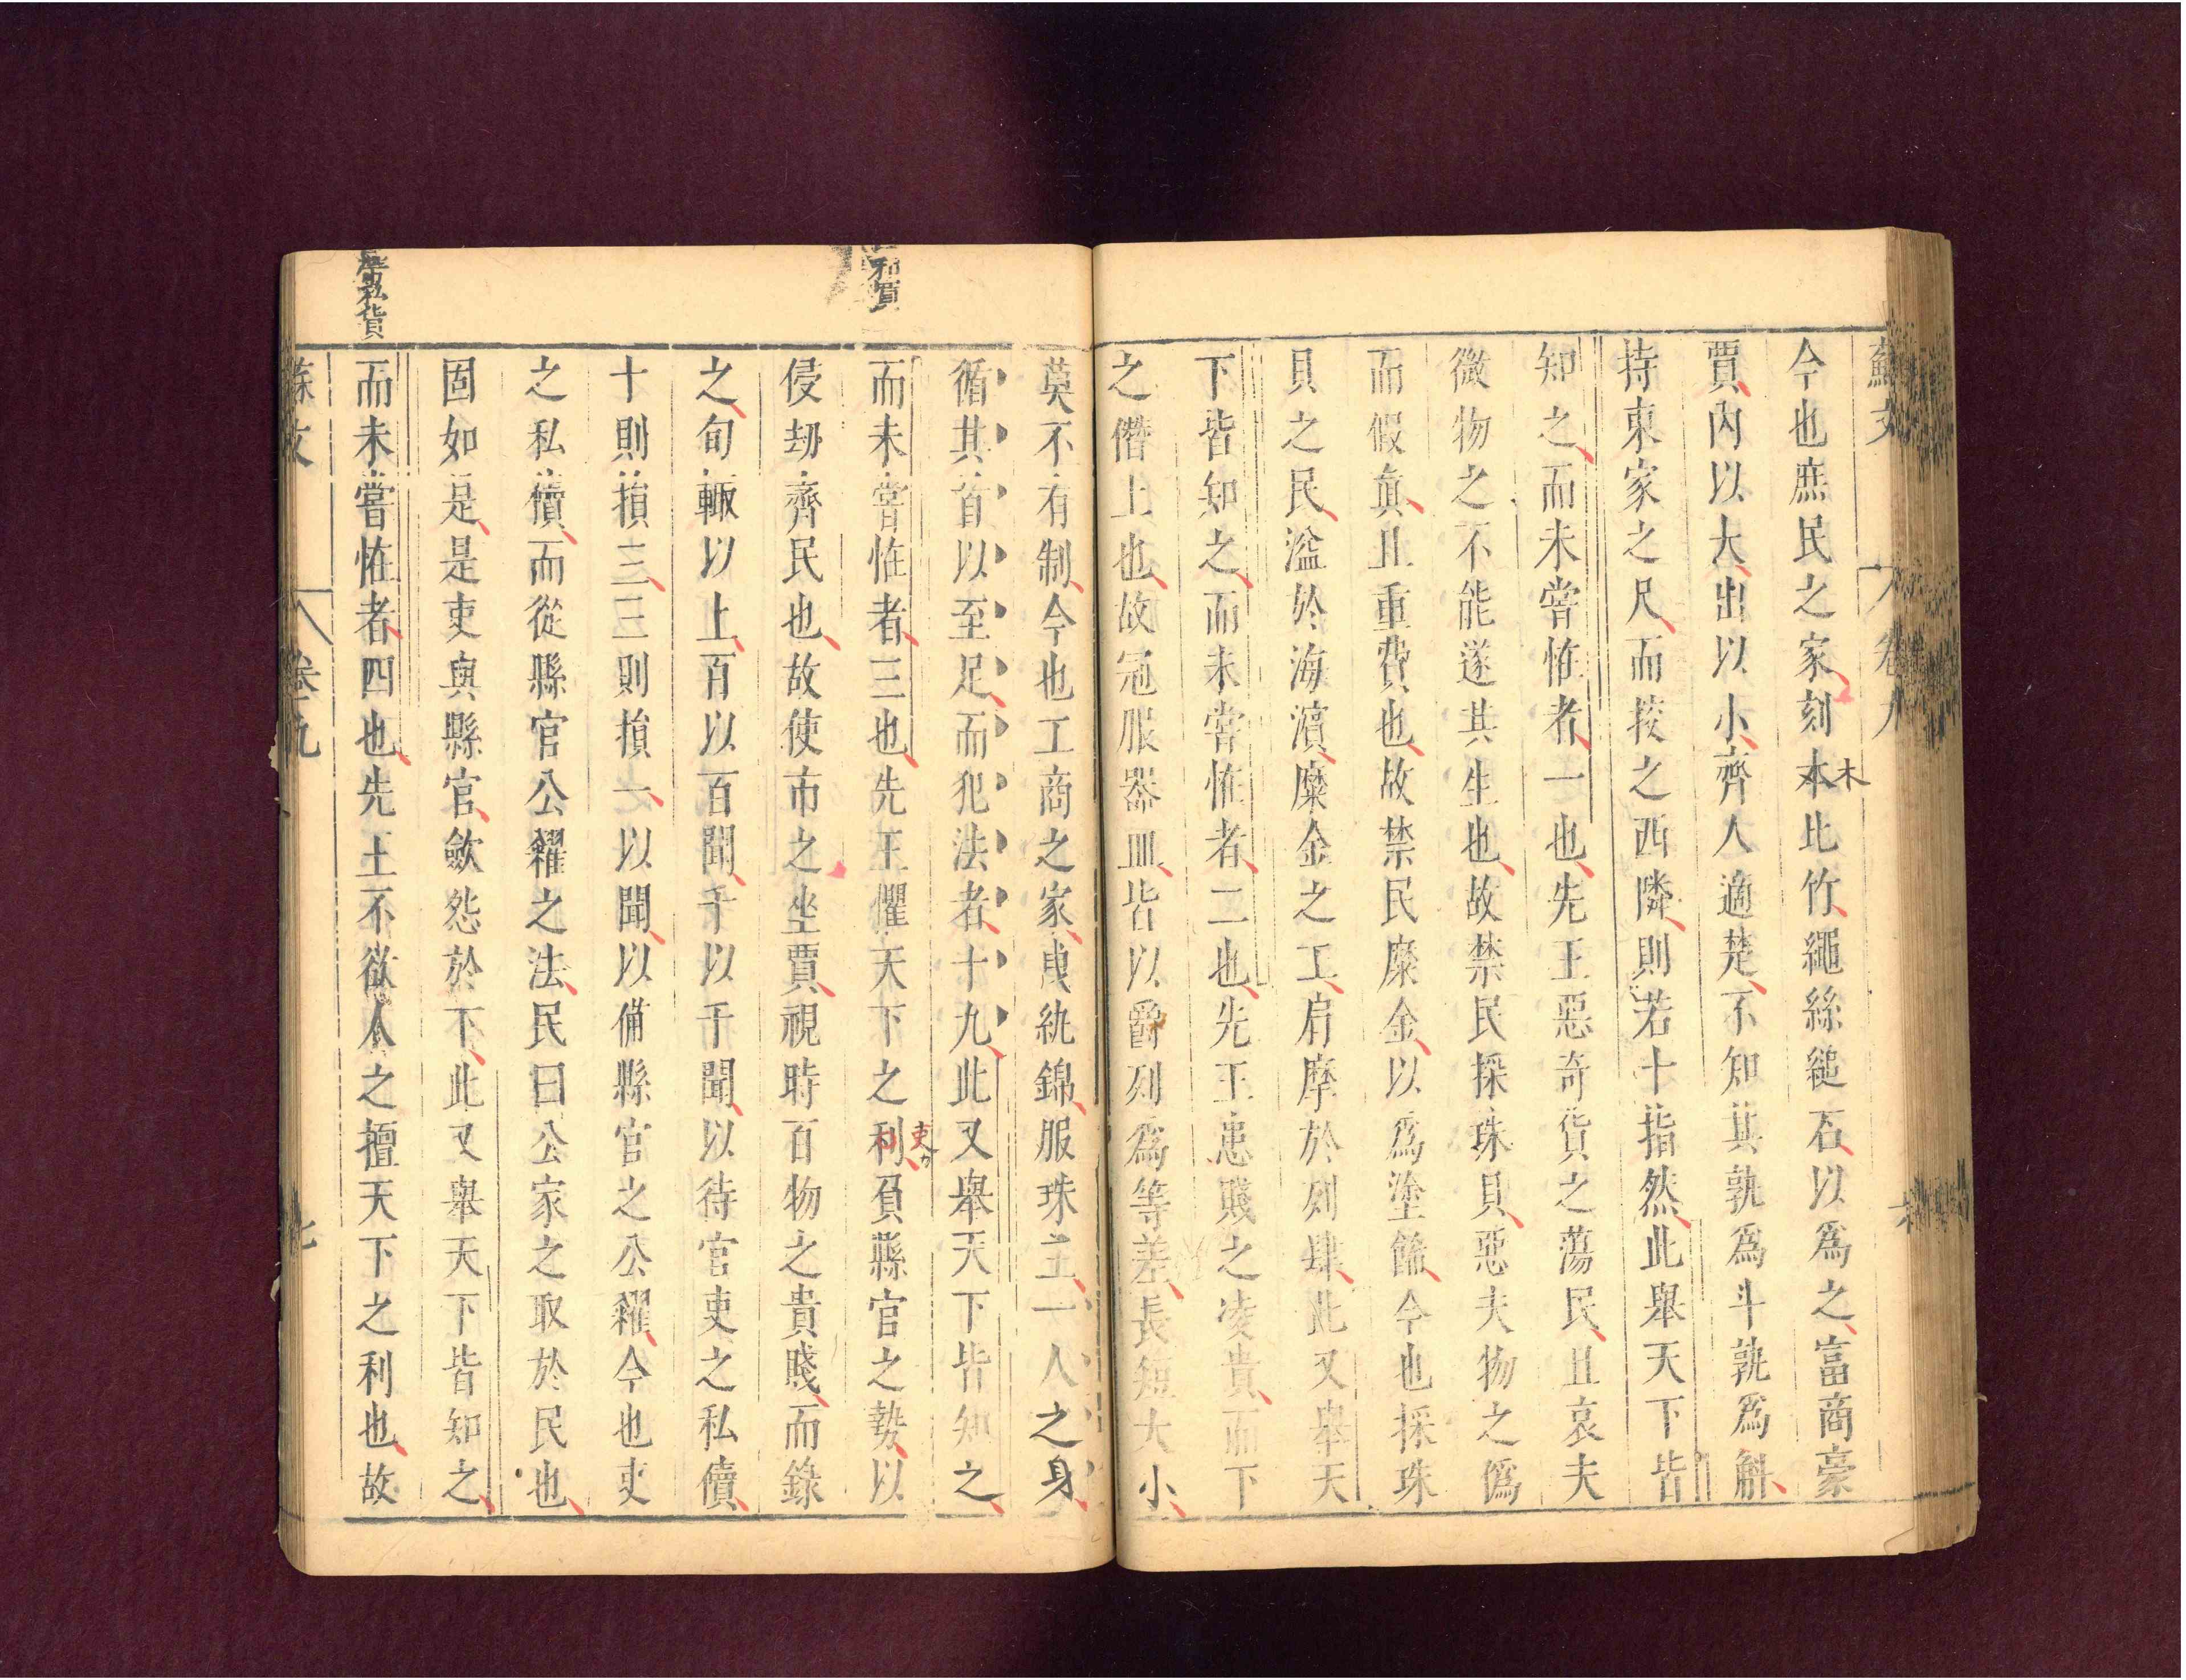 蘇文 卷九 六
今也庶民之家刻本比竹繩絲縋石以爲之富商豪
木
賈內以大出以小齊人適楚不知其孰爲斗孰爲斛
持東家之尺而挍之西隣則若十指然此舉天下皆
知之而未嘗恠者一也先王惡奇貨之蕩民且哀夫
微物之不能遂其生也故禁民採珠貝惡夫物之僞
而假眞且重費也故禁民糜金以爲塗餙今也採珠
貝之民溢於海濵糜金之工肩摩於列肆此又舉天
下皆知之而未嘗恠者二也先王患賤之凌貴而下
之僭上也故冠服器皿皆以爵列爲等差長短大小
莫不有制今也工商之家曳紈錦服珠玉一人之身
循其首以至足而犯法者十九此又舉天下皆知之
和買
而未嘗恠者三也先王懼天下之利負縣官之勢以
吏カ
侵刼齊民也故使市之坐賈視時百物之貴賤而錄
之旬輙以上百以百聞千以千聞以待官吏之私儥
十則損三三則損一以聞以備縣官之公糴今也吏
之私儥而從縣官公糴之法民曰公家之取於民也
固如是是吏與縣官歛怨於下此又舉天下皆知之
私貨
而未嘗恠者四也先王不欲人之擅天下之利也故
蘇文 卷九 七